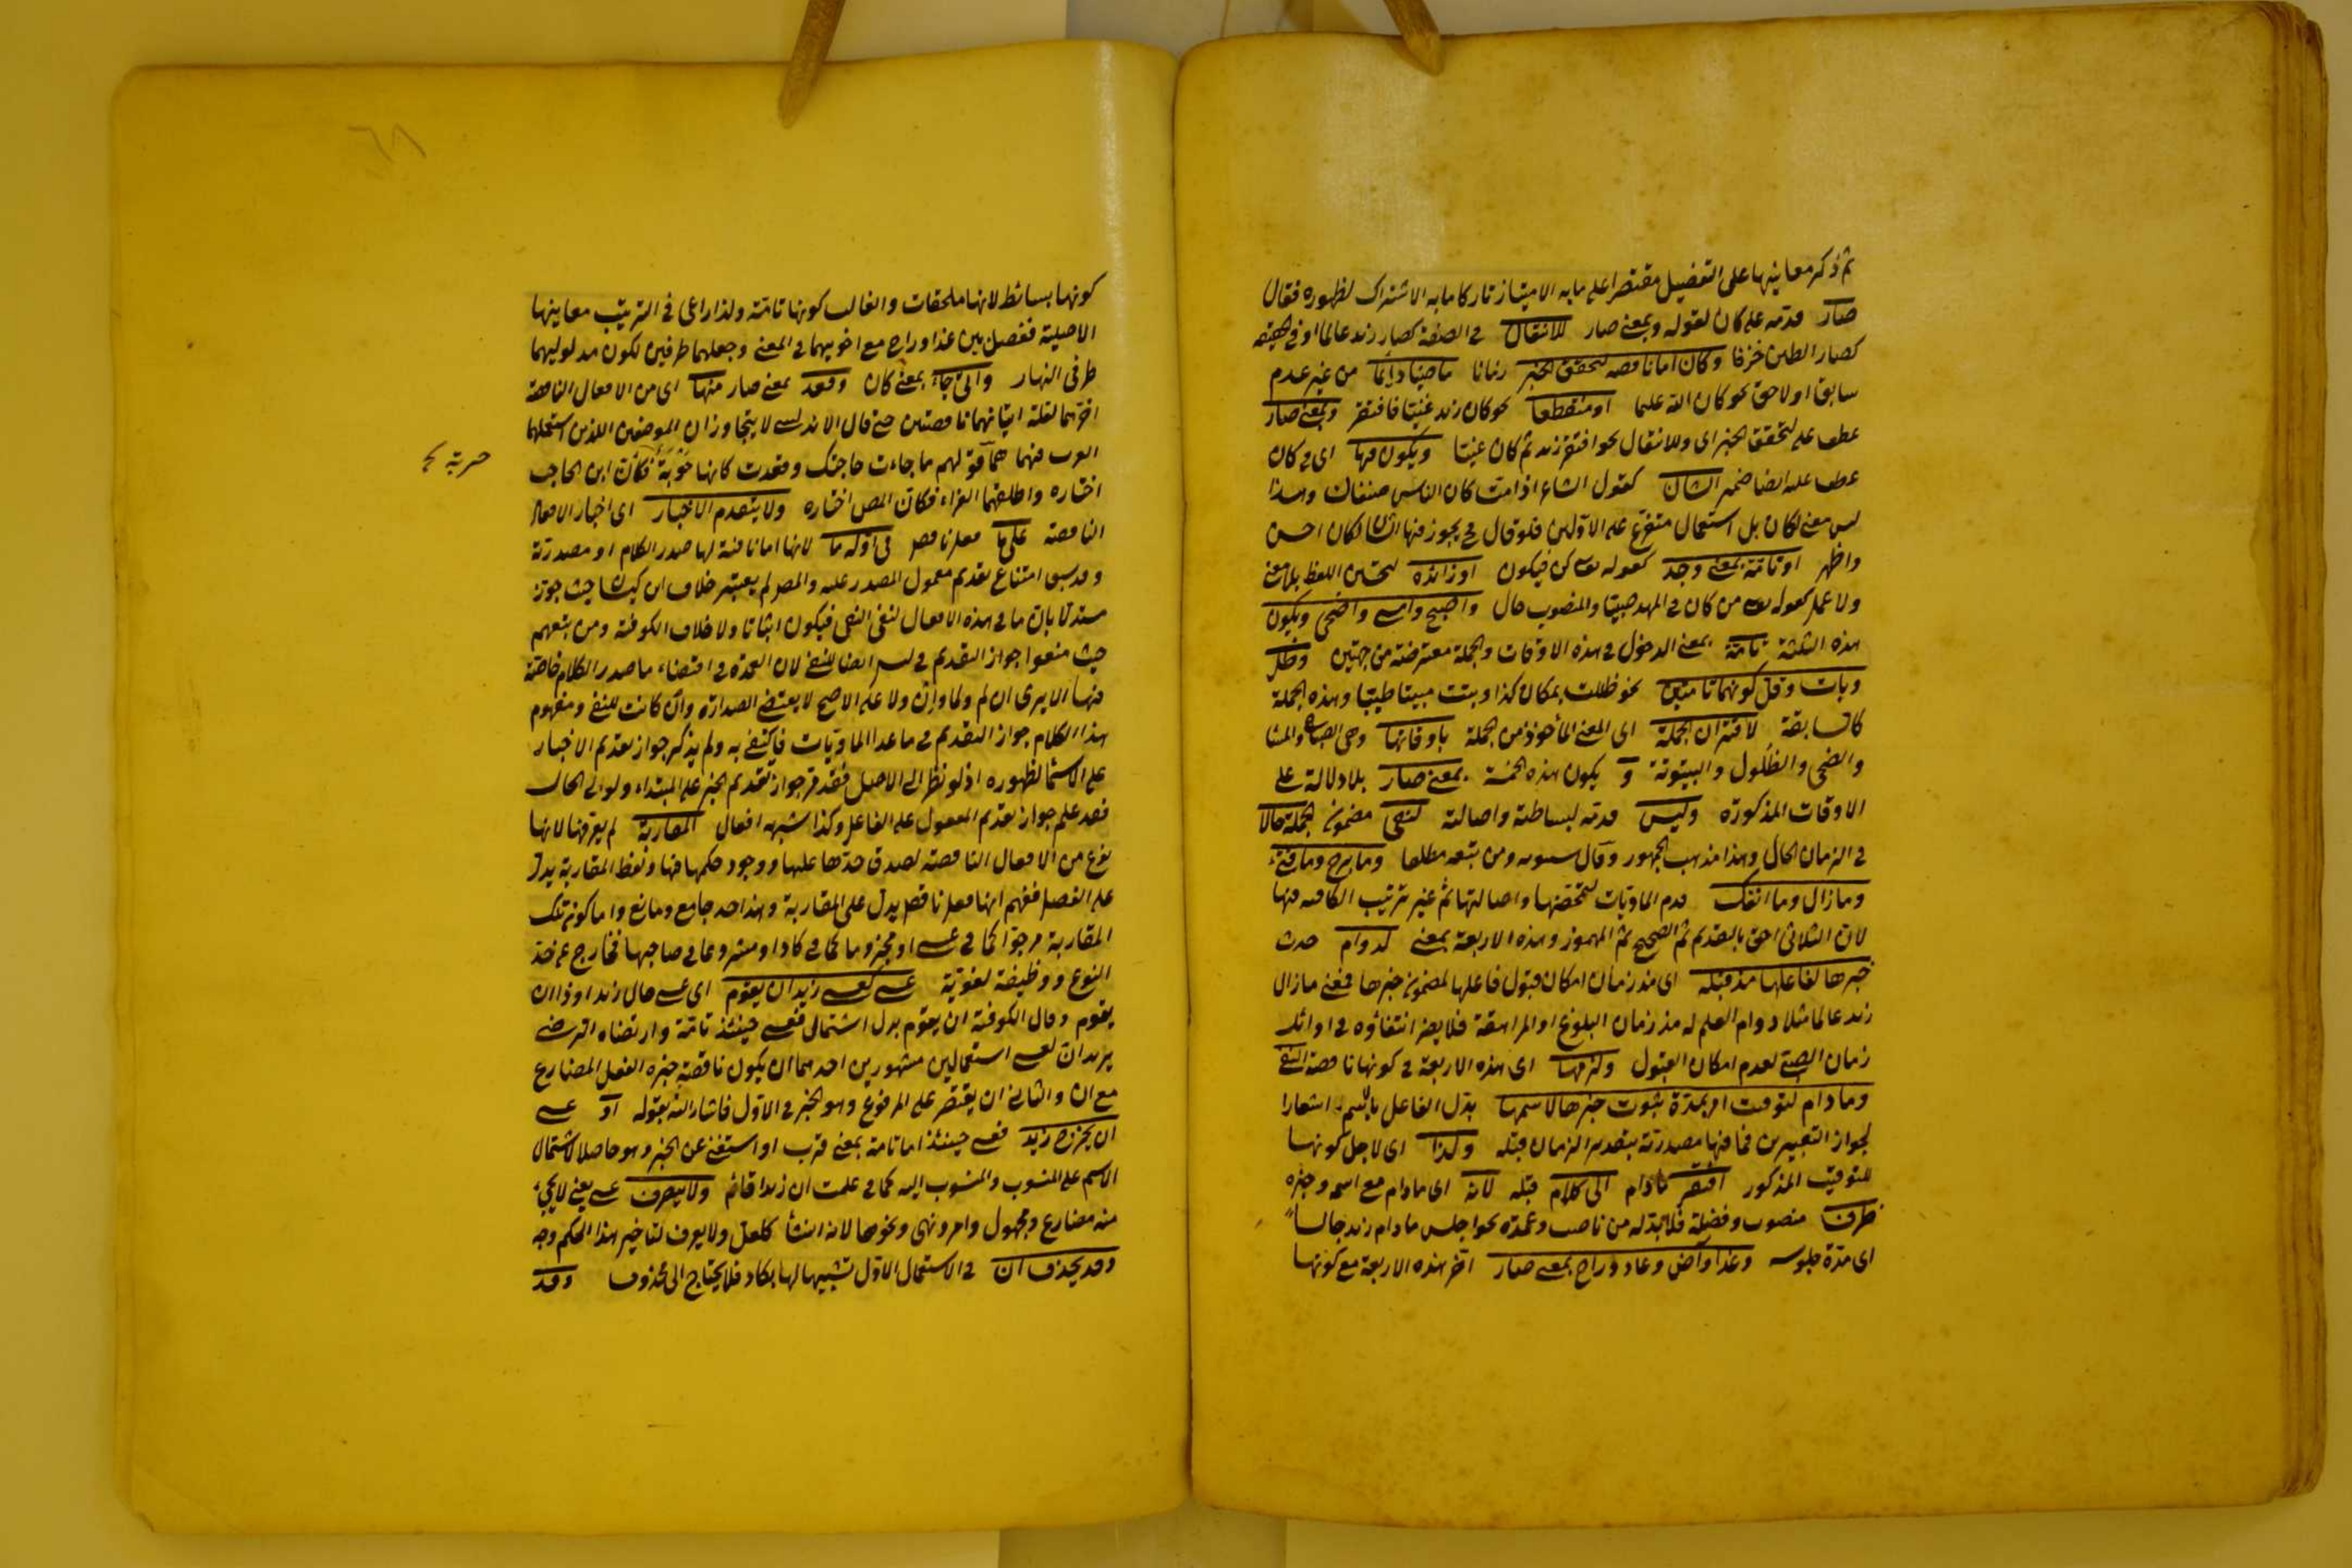 ثم ذكر معاينها على التفضيل مقتصرا على ما به الامتياز تاركا ما به الاشتراك لظهوره فقال
صار قدمه على كان لقوله وبمعنى صار للانتقال في الصفة كصار زيد عالما او في الحقيقة
كصار الطين خزفا وكان اما ناقصة لتحقق الخبر زمانا ماضيا دائما من غير عدم
سابق او لاحق نحو كان الله عليما او منقطعا نحو كان زيد غنيا فافتقر وبمعنى صار
عطف على لتحقق الخبر اى وللانتقال نحو افتقر زيد ثم كان غنيا ويكون فيها اى في كان
عطف عليه ايضا ضمير الشان كقول الشاعر اذا مت كان الناس صنفان وهذا
ليس معنى لكان بل استعمال متفرع على الاولين فلو قال يجوز فيها الشان لكان احسن
واظهر او تامة بمعنى وجد كقوله تعالى كن فيكون او زائدة لتحسين اللفظ بلا معنى
ولا عمل كقوله تعالى من كان في المهد صبيا والمنصوب حال واصبح وامسى واضحى ويكون
هذه الثلثة تامة بمعنى الدخول في هذه الاوقات والجملة معترضة من جهتين وظل
وبات وقل كونهما تامتين نحو ظللت بمكان كذا وبت مبيتا طيبا وهذه الجملة
كالسابقة لاقتران الجملة اى المعنى المأخوذ من الجملة باوقاتها وهى الصباح والمساء
والضحى والظلول والبيتوتة و يكون هذه الخمسة بمعنى صار بلا دلالة على
الاوقات المذكورة وليس قدمه لبساطته واصالته لنفى مضمون الجملة حالا
في الزمان الحال وهذا مذهب الجمهور وقال سيبويه ومن تبعه مطلقا وما برح وما فتئ
وما زال وما انفك قدم الماديات لتمحضها واصالتها ثم غير ترتيب الكافية فيها
لان الثلاثى احق بالتقديم ثم الصحيح ثم المهموز وهذه الاربعة بمعنى لدوام حدث
خبرها لفاعلها مذ قبله اى مذ زمان امكان قبول فاعلها لمضمون خبرها فمعنى ما زال
زيد عالما مثلا دوام العلم له مذ زمان البلوغ او المراهقة فلا يضر انتفاؤه في اوائل
زمان الصبى لعدم امكان القبول ولزمها اى هذه الاربعة في كونها ناقصة النفى
وما دام لتوقيت امر بمدة ثبوت خبرها لاسمها بدل الفاعل بالاسم اشعارا
لجواز التعبيرين فما فيها مصدرية بتقدير الزمان قبله ولذا اى لاجل كونها
للتوقيت المذكور افتقر ما دام الى كلام قبله لانه اى ما دام مع اسمه وخبره
ظرف منصوب وفضلة فلا بد له من ناصب وعمدة نحو اجلس ما دام زيد جالسا
اى مدة جلوسه وغدا وآض وعاد وراح بمعنى صار اخر هذه الاربعة مع كونها
٦٨
كونها بسائط لانها ملحقات والغالب كونها تامة ولذا راعى في الترتيب معاينها
الاصلية ففصل بين غدا وراح مع اخويهما في المعنى وجعلهما طرفين لكون مدلوليهما
طرفى النهار واتى جاء بمعنى كان وقعد بمعنى صار منها اى من الافعال الناقصة
اخرهما لقلة اتيانهما ناقصتين حتى قال الاندلسى لا يتجاوزان الموضعين اللذين استعملهما
العرب فيهما هما قولهم ما جاءت حاجتك وقعدت كانها حَرْبَةٌ فكأن ابن الحاجب
حربة
اختاره واطلقهما الفراء فكان المص اختاره ولا يتقدم الاخبار اى اخبار الافعال
الناقصة على ما فعل ناقص في اوله ما لانها اما نافية لها صدر الكلام او مصدرية
وقد سبق امتناع تقديم معمول المصدر عليه والمص لم يعتبر خلاف ابن كيسان حيث جوز
مستدلا بان ما في هذه الافعال لنفى النفى فيكون اثباتا ولا خلاف الكوفية ومن تبعهم
حيث منعوا جواز التقديم في ليس ايضا للنفى لان العمدة في اقتضاء ما صدر الكلام خاصة
فيها الا يرى ان لم ولما وان ولا على الاصح لا يقتضى الصدارة وان كانت للنفى ومفهوم
هذا الكلام جواز التقديم في ما عدا الماويات فاكتفى به ولم يذكر جواز تقديم الاخبار
على الاسماء لظهوره اذ لو نظر الى الاصل فقد مر جواز تقديم الخبر على المبتداء ولو الى الحال
فقد علم جواز تقديم المفعول على الفاعل وكذا شبهه افعال المقاربة لم يعرفها لانها
نوع من الافعال الناقصة لصدق حدها عليها ووجود حكمها فيها ولفظ المقاربة يدل
على الفصل ففهم انها فعل ناقص يدل على المقاربة وهذا حد جامع ومانع واما كون تلك
المقاربة مرجوا كما في عسى او مجزوما كما في كاد او مشروعا في صاحبها فخارج عن حد
النوع ووظيفة لغوية عسى كعسى زيد ان يقوم اى عسى حال زيد او ذا ان
يقوم وقال الكوفية ان يقوم بدل اشتمال فعسى حينئذ تامة وارتضاه الرضى
يريد ان لعسى استعمالين مشهورين احدهما ان يكون ناقصة خبره الفعل المضارع
مع ان والثانى ان يقتصر على المرفوع وهو الخبر في الاول فاشار اليه بقوله او عسى
ان يخرج زيد فعسى حينئذ اما تامة بمعنى قرب او استغنى عن الخبر وهو حاصلا لاشتمال
الاسم على المنسوب والمنسوب اليه كما في علمت ان زيدا قائم ولا يتصرف عسى يعنى لا يجئ
منه مضارع ومجهول وامر ونهى ونحوها لانه انشاء كلعل ولا يعرف لتأخير هذا الحكم وجه
وقد يحذف ان في الاستعمال الاول تشبيها لها بكاد فلا يحتاج الى محذوف وقد